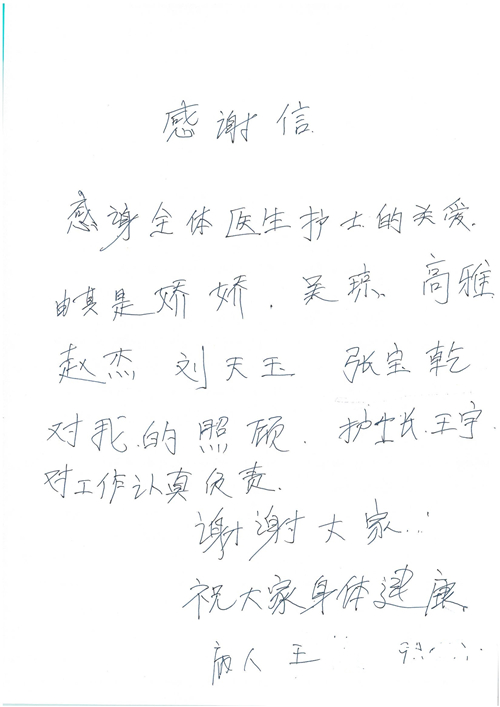 感谢信
感谢全体医生护士的关爱.
其是娇娇. 吴琼、高雅
赵杰 刘天玉 张宝乾
对我的照顾. 护士长.王宇.
对工作认真负责.
谢谢大家..
祝大家身体健康
病人 王